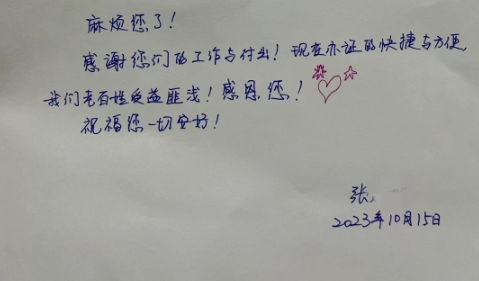 麻烦您了！
感谢您们的工作与付出！现在办证的快捷与方便，
我们老百姓受益匪浅！感恩您！
祝福您一切安好！
张
2023年10月15日